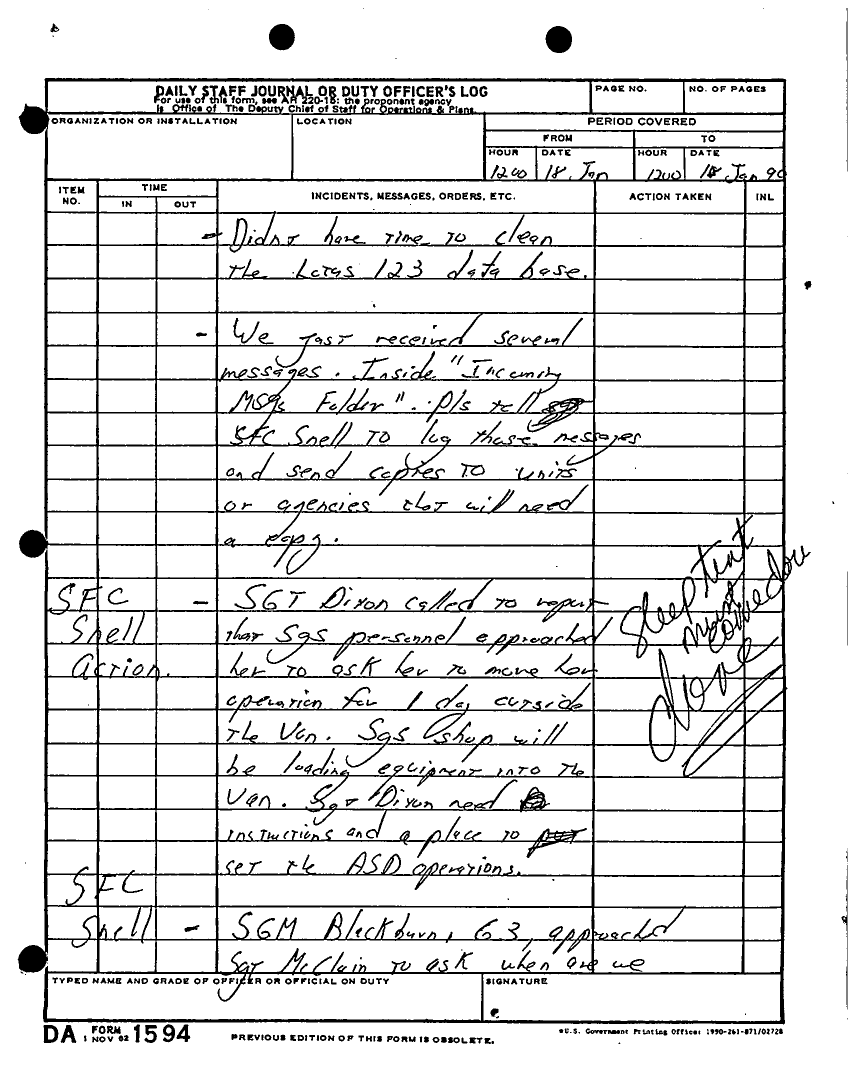 DAILY STAFF JOURNAL OR DUTY OFFICER'S LOG
For use of this form, see AR 220-15; the proponent agency
is Office of The Deputy Chief of Staff for Operations & Plans.
PAGE NO.
NO. OF PAGES
ORGANIZATION OR INSTALLATION
LOCATION
PERIOD COVERED
FROM
TO
HOUR
DATE
HOUR
DATE
1200
18 Jan
1200
18 Jan 90
ITEM NO.
TIME
IN
OUT
INCIDENTS, MESSAGES, ORDERS, ETC.
ACTION TAKEN
INL
- Didn't have time to clean
the Lotus 123 data base.
- We just received several
messages. Inside "Incoming
MSGs Folder". Pls tell
SFC Snell to log those messages
and send copies to units
or agencies that will need
a copy.
SFC - SGT Dixon called to report
Snell that SGS personnel approached
Action. her to ask her to move her
operation for 1 day outside
the Van. SGS shop will
be loading equipment into the
Van. Sgt Dixon need
instructions and a place to
set the ASD operations.
Done
SFC
Snell - SGM Blackburn, G3, approached
Sgt McClain to ask when are we
TYPED NAME AND GRADE OF OFFICER OR OFFICIAL ON DUTY
SIGNATURE
DA FORM 1594
1 NOV 62
PREVIOUS EDITION OF THIS FORM IS OBSOLETE.
*U.S. Government Printing Office: 1990-261-871/02728